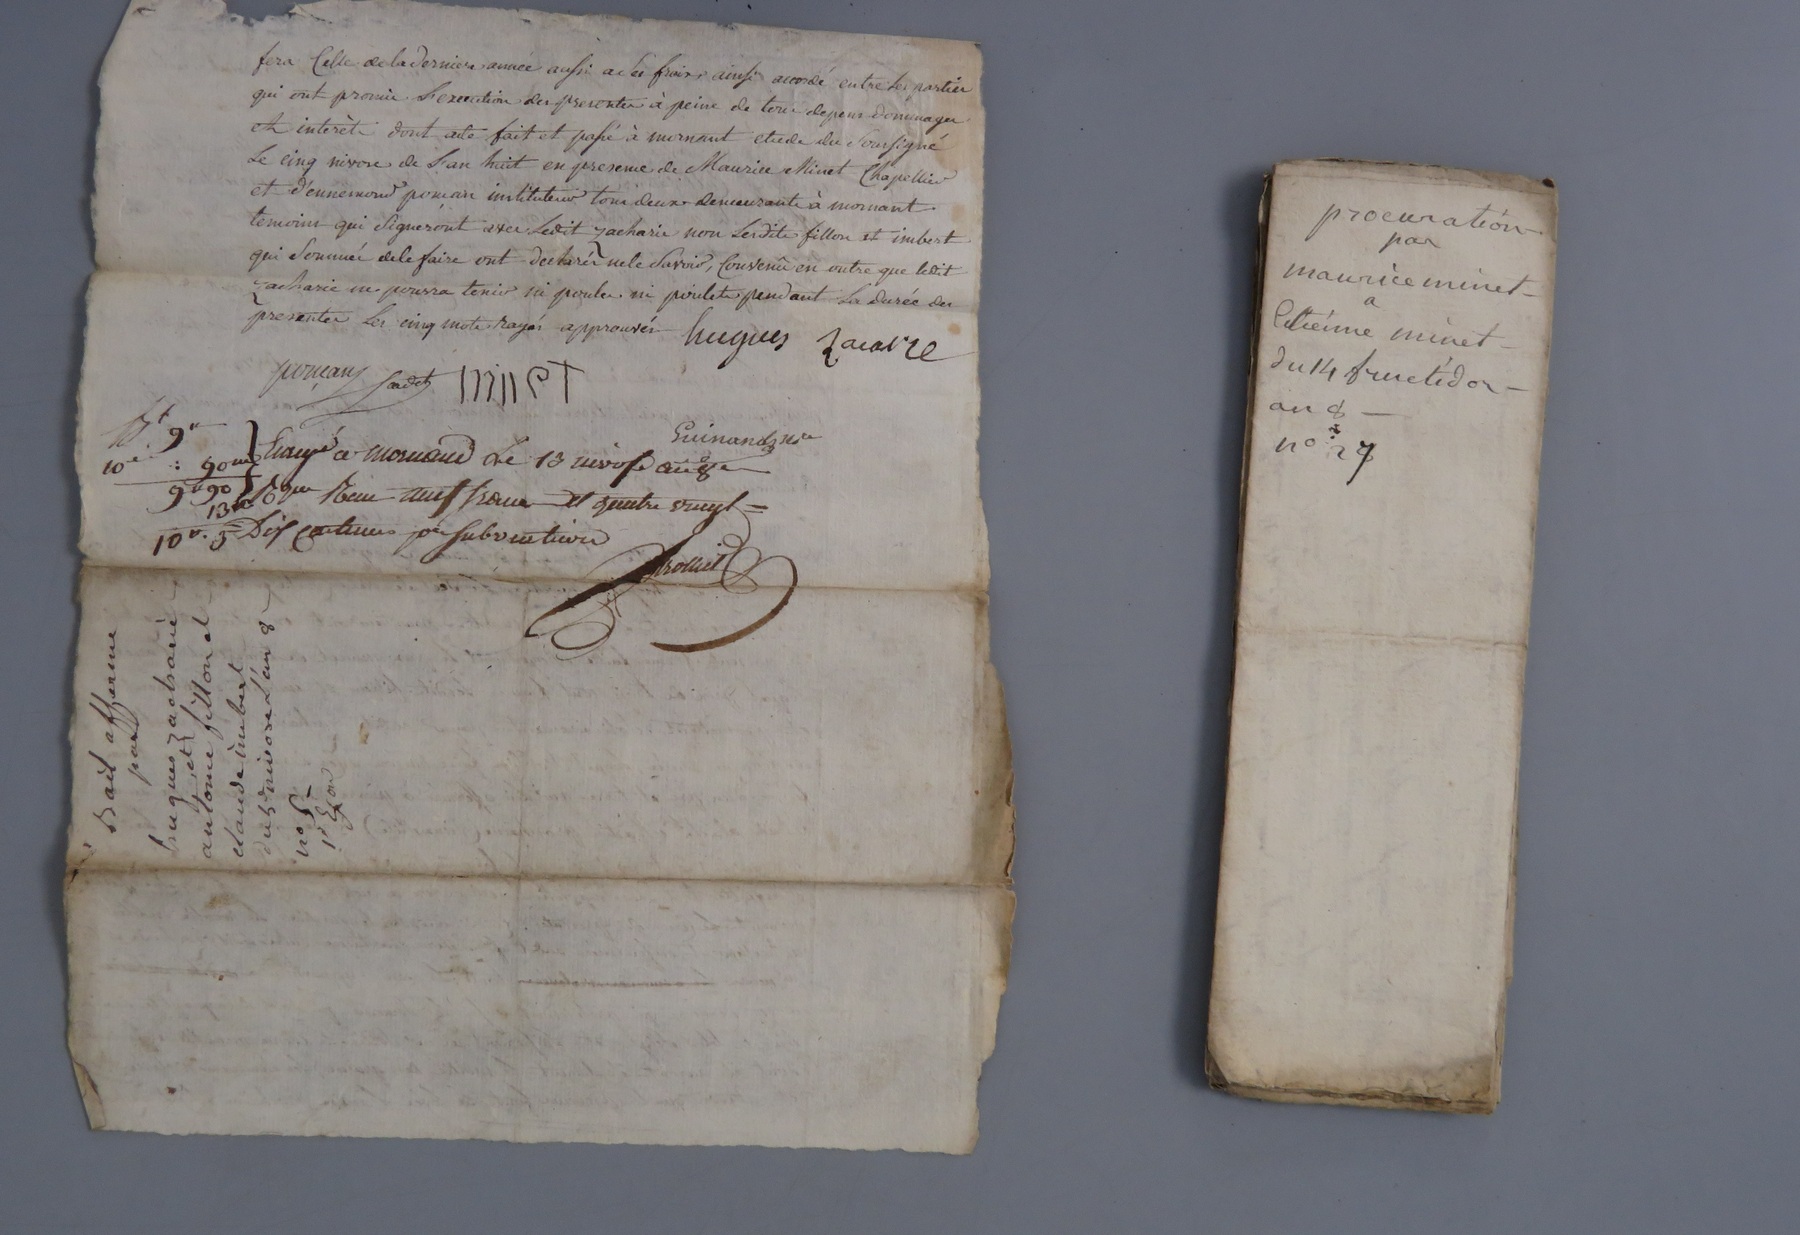 fera Celle de la derniere année aussi a ses fraix, ainsi accordé entre les partier
qui ont promis L'execution des presentes à peine de tous depens dommages
et interèts dont acte fait et passé à mornant etude du Soussigné
Le cinq nivose de L'an huit en presence de Maurice Minet Chapellier
et d'ennemond poncan instituteur tous deux demeurants à mornant
temoins qui Signeront avec Ledit zacharie non Lesdits fillon et imbert
qui Sommés de le faire ont declaré ne le Savoir, Convenu en outre que ledit
zacharie ne pourra tenir ni poules ni poulets pendant La durée des
presentes Les cinq mots rayés approuvés hugues zacarie
poncan minet
Guinand nre
9
10e : 90
9 90
10 5
Enregé a mornand Le 13 nivose an 8e
Reçu neuf francs et quatre vingt
Dix Centimes pr subvention
Bail afferme
par
hugues zacharie
et
antoine fillon et
claude imbert
du 5 nivose L'an 8
no 5
procuration
par
maurice minet
a
Etiénne minet
du 14 fructidor
an 8
no 27